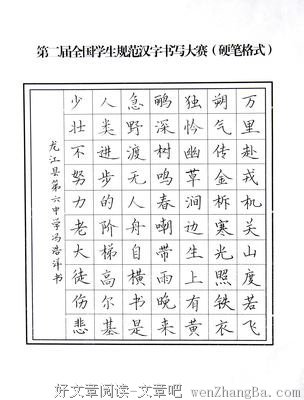 第二届全国学生规范汉字书写大赛(硬笔格式)
万里赴戎机关山度若飞
朔气传金柝寒光照铁衣
独怜幽草涧边生上有黄
鹂深树鸣春潮带雨晚来
急野渡无人舟自横书是
人类进步的阶梯高尔基
少壮不努力老大徒伤悲
龙江县第六中学冯浩洋书
好文章阅读-文章吧 wenZhangBa.com